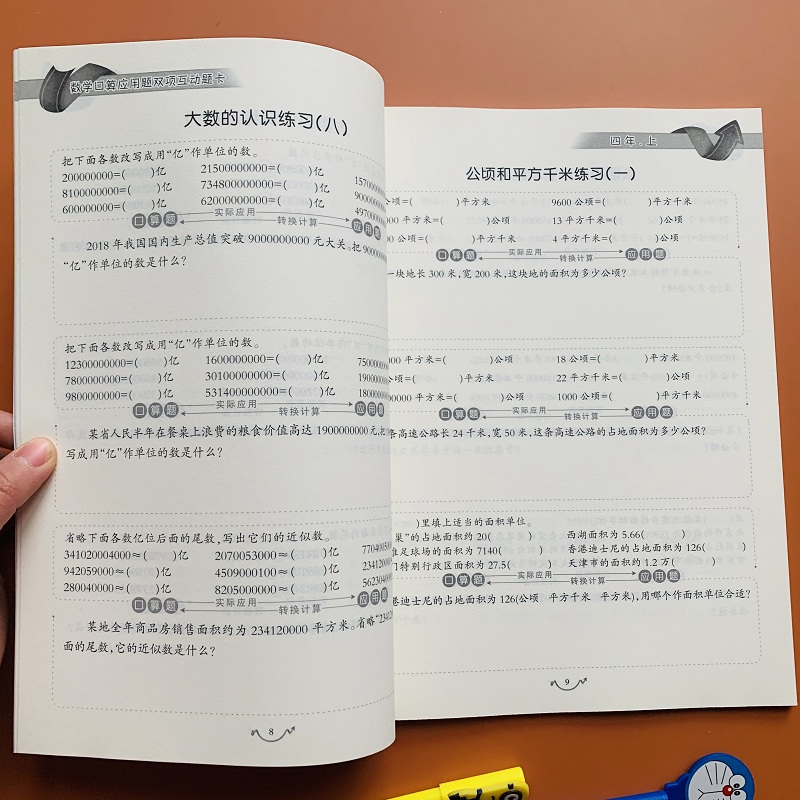 数学口算应用题双项互动题卡
大数的认识练习(八)
把下面各数改写成用“亿”作单位的数。
200000000=( )亿 21500000000=( )亿
8100000000=( )亿 734800000000=( )亿
600000000=( )亿 62000000000=( )亿
口算题 实际应用 转换计算 应用题
2018年我国国内生产总值突破9000000000元大关。把
“亿”作单位的数是什么?
把下面各数改写成用“亿”作单位的数。
12300000000=( )亿 1600000000=( )亿
7800000000=( )亿 30100000000=( )亿
9800000000=( )亿 531400000000=( )亿
口算题 实际应用 转换计算 应用题
某省人民半年在餐桌上浪费的粮食价值高达1900000000元,
写成用“亿”作单位的数是什么?
省略下面各数亿位后面的尾数,写出它们的近似数。
341020004000≈( )亿 2070053000≈( )亿
942059000≈( )亿 4509000100≈( )亿
280040000≈( )亿 8205000000≈( )亿
口算题 实际应用 转换计算 应用题
某地全年商品房销售面积约为234120000平方米。省略“
面的尾数,它的近似数是什么?
8
四年.上
公顷和平方千米练习(一)
公顷=( )平方米 9600公顷=( )平方千米
平方米=( )公顷 13平方千米=( )公顷
公顷=( )平方千米 4平方千米=( )公顷
口算题 实际应用 转换计算 应用题
一块地长300米,宽200米,这块地的面积为多少公顷?
平方米=( )公顷 18公顷=( )平方米
公顷=( )平方米 22平方千米=( )公顷
平方米=( )公顷 1000公顷=( )平方千米
口算题 实际应用 转换计算 应用题
条高速公路长24千米,宽50米,这条高速公路的占地面积为多少公顷?
)里填上适当的面积单位。
”的占地面积约20( ) 西湖面积为5.66( )
足球场的面积为7140( ) 香港迪士尼的占地面积为126( )
特别行政区面积为27.5( ) 天津市的面积约1.2万( )
口算题 实际应用 转换计算 应用题
港迪士尼的占地面积为126(公顷 平方千米 平方米),用哪个作面积单位合适?
9